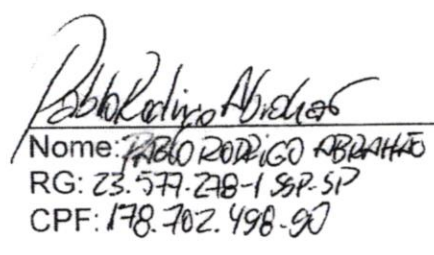 Pablo Rodrigo Abrahão
Nome: PABLO RODRIGO ABRAHÃO
RG: 23.577.278-1 SSP-SP
CPF: 178.702.498-90